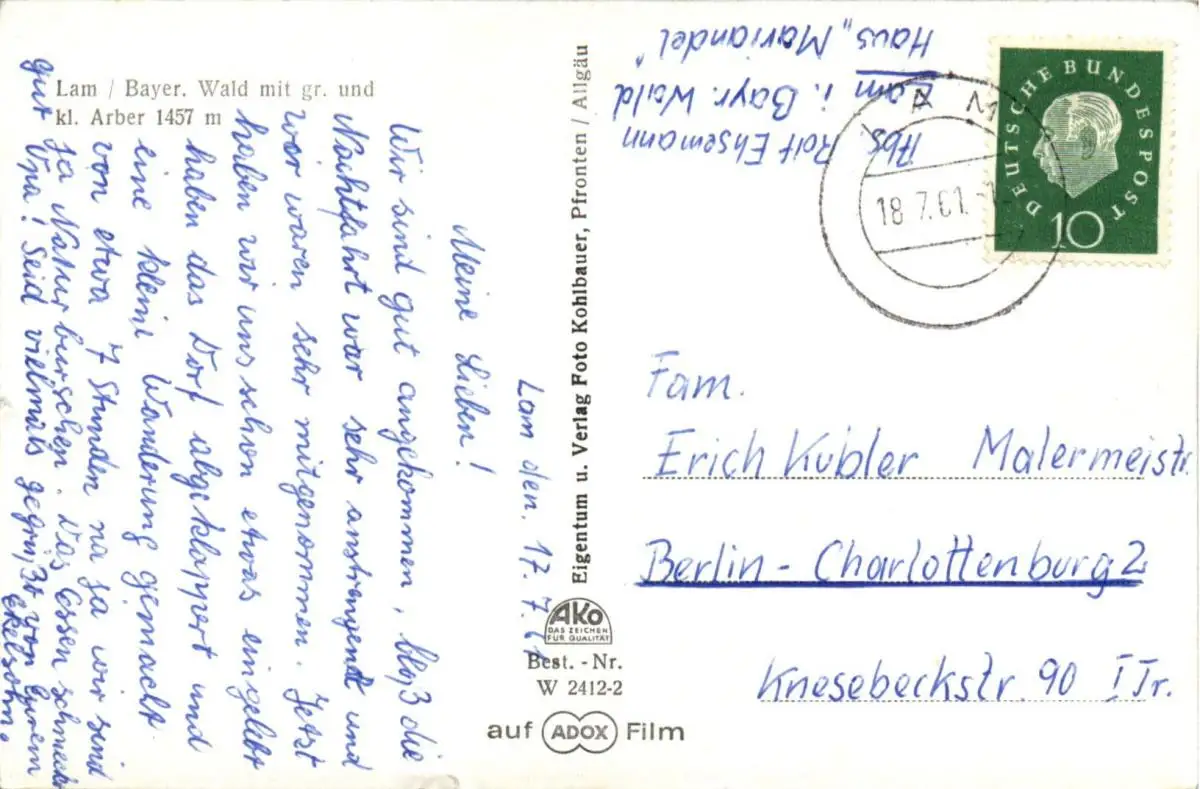 Lam / Bayer. Wald mit gr. und
kl. Arber 1457 m
Lam den. 17. 7. 61
Meine Lieben!
Wir sind gut angekommen, bloß die
Nachtfahrt war sehr anstrengend und
wir waren sehr mitgenommen. Jetzt
haben wir uns schon etwas eingelebt
haben das Dorf abgeklappert und
eine kleine Wanderung gemacht
von etwa 7 Stunden na ja wir sind
ja Naturburschen. Das Essen schmeckt
gut Oma! Seid vielmals gegrüßt von Eurem
Ekelsohn.
Eigentum u. Verlag Foto Kohlbauer, Pfronten / Allgäu
AKO
DAS ZEICHEN
FÜR QUALITÄT
Best. - Nr.
W 2412-2
auf ADOX Film
Abs. Rolf Ehsemann
Lam i. Bayr. Wald
Haus „Mariandel"
DEUTSCHE BUNDESPOST
10
LAM
18.7.61.
Fam.
Erich Kübler Malermeistr.
Berlin - Charlottenburg 2
Knesebeckstr. 90 I Tr.